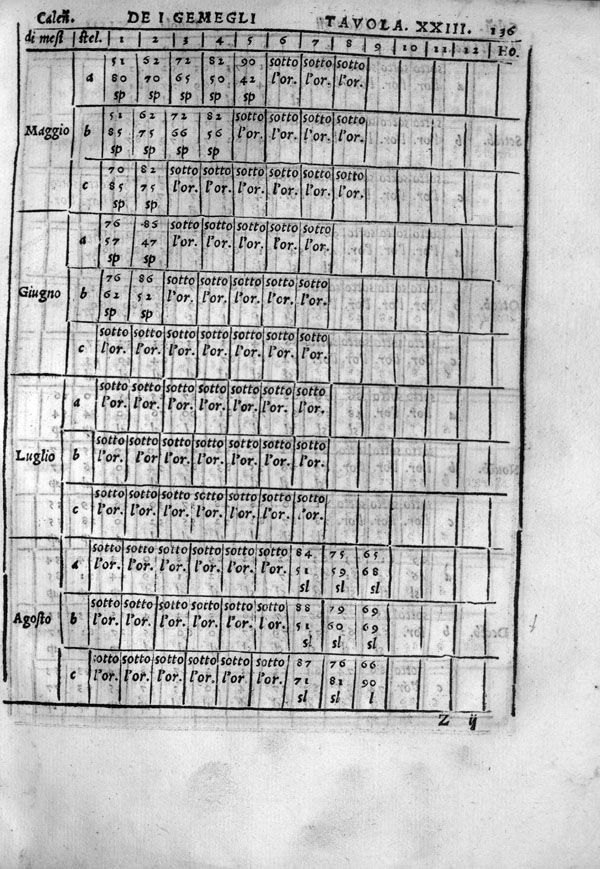 Caleñ. DE I GEMEGLI TAVOLA. XXIII. 136
di mesi stel. 1 2 3 4 5 6 7 8 9 10 11 12 HO.
51 62 72 82 90 sotto sotto sotto
a 80 70 65 50 42 l'or. l'or. l'or.
sp sp sp sp sp
51 62 72 82 sotto sotto sotto sotto
Maggio b 85 75 66 56 l'or. l'or. l'or. l'or.
sp sp sp sp
70 82 sotto sotto sotto sotto sotto sotto
c 85 75 l'or. l'or. l'or. l'or. l'or. l'or.
sp sp
76 86 sotto sotto sotto sotto sotto
a 57 47 l'or. l'or. l'or. l'or. l'or.
sp sp
76 86 sotto sotto sotto sotto sotto
Giugno b 62 52 l'or. l'or. l'or. l'or. l'or.
sp sp
sotto sotto sotto sotto sotto sotto sotto
c l'or. l'or. l'or. l'or. l'or. l'or. l'or.
sotto sotto sotto sotto sotto sotto sotto
a l'or. l'or. l'or. l'or. l'or. l'or. l'or.
sotto sotto sotto sotto sotto sotto sotto
Luglio b l'or. l'or l'or. l'or. l'or. l'or. l'or.
sotto sotto sotto sotto sotto sotto sotto
c l'or. l'or. l'or. l'or. l'or. l'or. l'or.
sotto sotto sotto sotto sotto sotto 84 75 65
a l'or. l'or. l'or. l'or. l'or. l'or. 51 59 68
sl sl sl
sotto sotto sotto sotto sotto sotto 88 79 69
Agosto b l'or. l'or. l'or. l'or. l'or. l'or. 51 60 69
sl sl sl
sotto sotto sotto sotto sotto sotto 87 76 66
c l'or. l'or. l'or. l'or. l'or. l'or. 71 81 90
sl sl l
Z ij